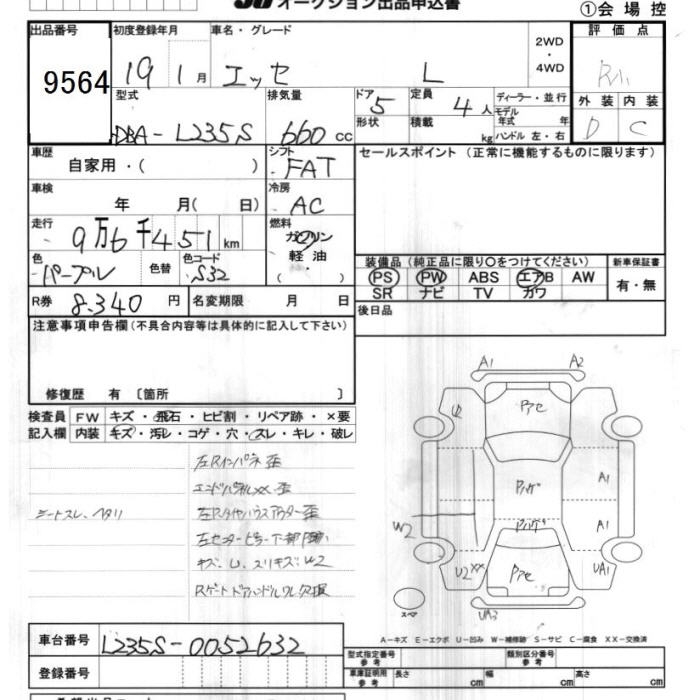 オークション出品申込書
①会場控
出品番号 初度登録年月 車名・グレード 2WD・4WD 評価点
9564 19 1月 エッセ L
外装 内装
D C
型式 排気量 ドア 5 定員 4人 ディーラー・並行
モデル年式 年
DBA-L235S 660cc 形状 積載 kg ハンドル 左・右
車歴 シフト セールスポイント (正常に機能するものに限ります)
自家用・( ) FAT
車検 冷房
年 月( 日) AC
走行 燃料
9万6千451km ガソリン
軽油
・
( )
色 色替 色コード
パープル S32
装備品 (純正品に限り○をつけてください) 新車保証書
PS PW ABS エアB AW 有・無
SR ナビ TV カワ
R券 8.340円 名変期限 月 日
後日品
注意事項申告欄 (不具合内容等は具体的に記入して下さい)
修復歴 有 〔箇所 〕
検査員 FW キズ・飛石・ヒビ割・リペア跡・×要
記入欄 内装 キズ・汚レ・コゲ・穴・スレ・キレ・破レ
左Rインパネ歪
エンドパネルXX.歪
シートスレ、ヘタリ 左Rタイヤハウスアウター歪
左センターピラー下部
キズ、U、スリキズ、W2
Rゲートドアハンドルワレ欠損
A1 A2
U Pアセ
A1
Pハゲ
W2 Pハゲ A1
U2XX Pアセ UA1
スペア UA3
A-キズ E-エクボ U-凹み W-補修跡 S-サビ C-腐食 XX-交換済
車台番号 L235S-0052632
型式指定番号 参考 類別区分番号 参考
登録番号 車庫証明用 参考 長さ cm 幅 cm 高さ cm